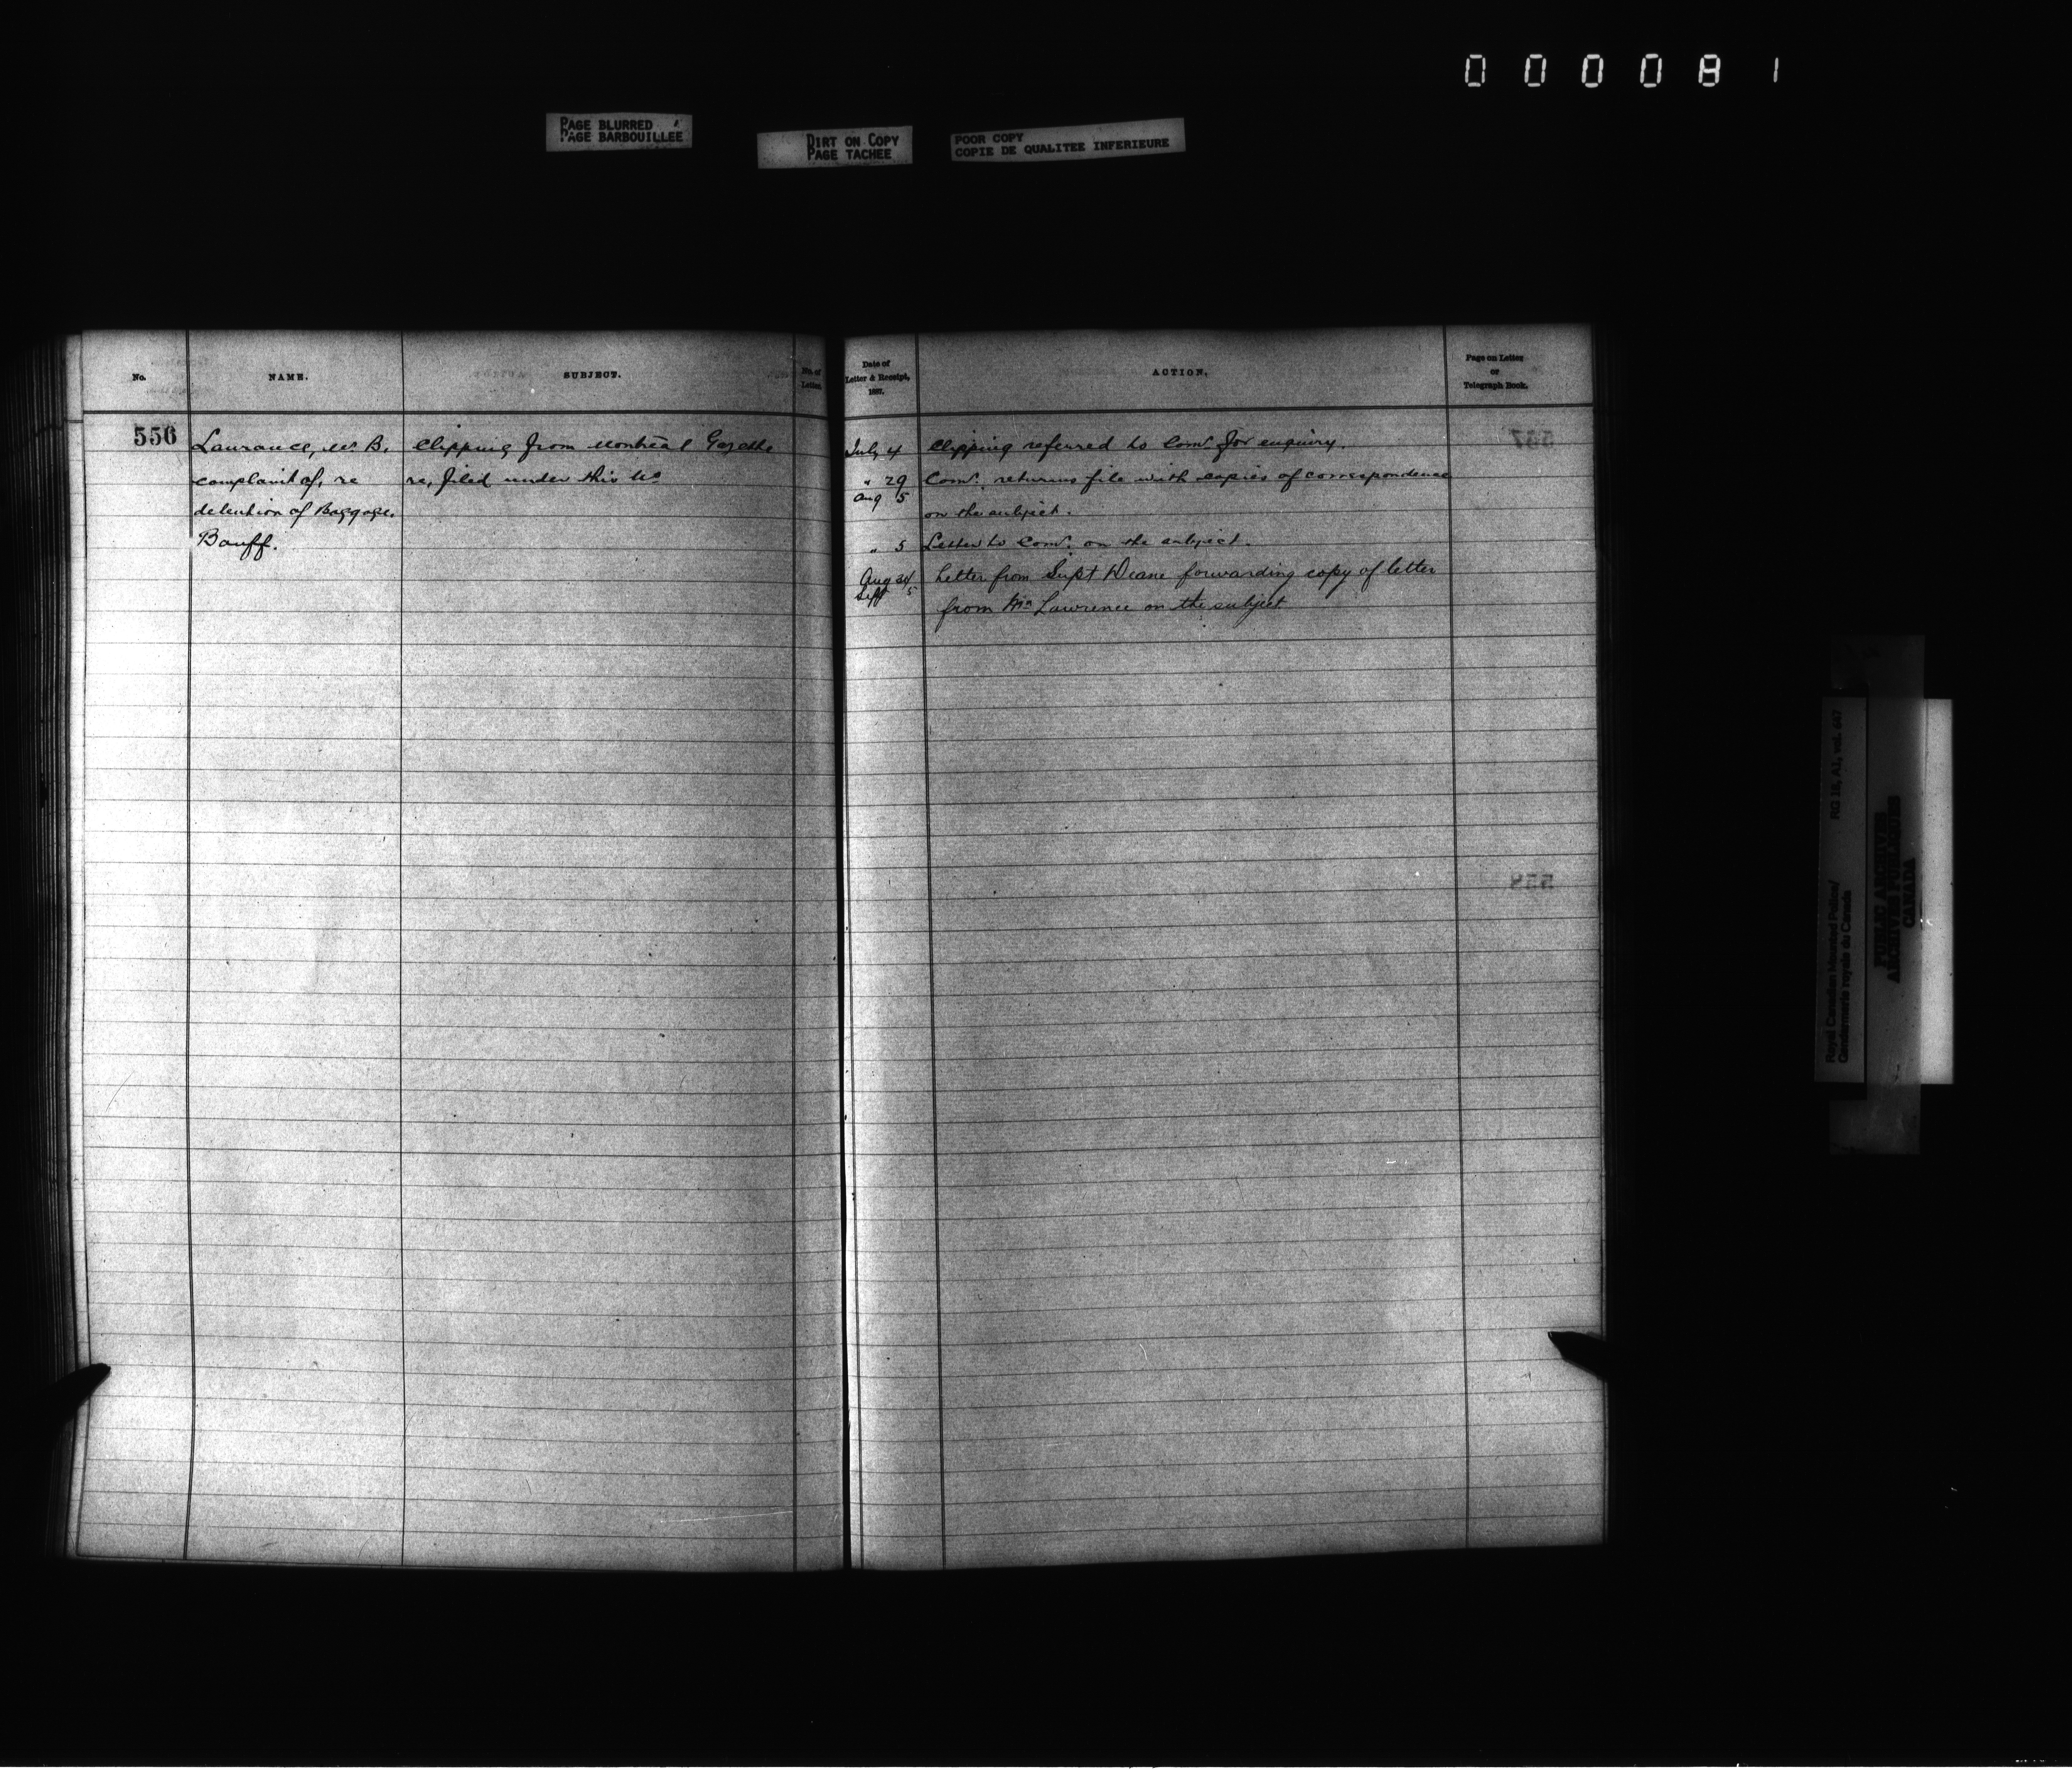 000081
PAGE BLURRED
PAGE BARBOUILLEE
DIRT ON COPY
PAGE TACHEE
POOR COPY
COPIE DE QUALITEE INFERIEURE
No.
NAME.
SUBJECT.
No. of
Letter.
Date of
Letter & Receipt,
1887.
ACTION.
Page on Letter
or
Telegraph Book.
556
Laurance, W. B.
complaint of, re
detention of Baggage.
Banff.
Clipping from Montreal Gazette
re, filed under this No
July 4 Clipping referred to Comr. for enquiry.
" 29 Comr. returns file with copies of correspondence
Aug 5
on the subject.
" 5 Letter to Comr. on the subject.
Aug 24 Letter from Supt Deane forwarding copy of letter
Sept 5
from Mr Lawrence on the subject
557
558
Royal Canadian Mounted Police/
Gendarmerie royale du Canada
RG 18, A1, vol. 647
PUBLIC ARCHIVES
ARCHIVES PUBLIQUES
CANADA